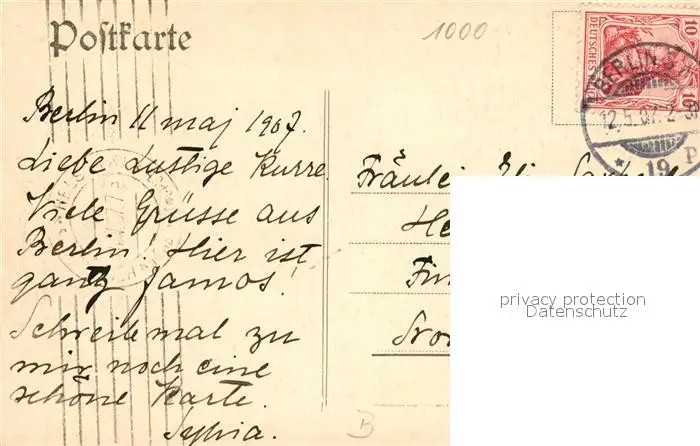 Postkarte
1000
10
10
DEUTSCHES
BERLIN
12.5.07. 2-3
19
Berlin 11 maj 1907.
Liebe Lustige Kurre
Viele Grüsse aus
Berlin! Hier ist
ganz famos!
Schreibe mal zu
mir noch eine
schöne Karte.
Sylvia.
Fräulein
B
privacy protection
Datenschutz